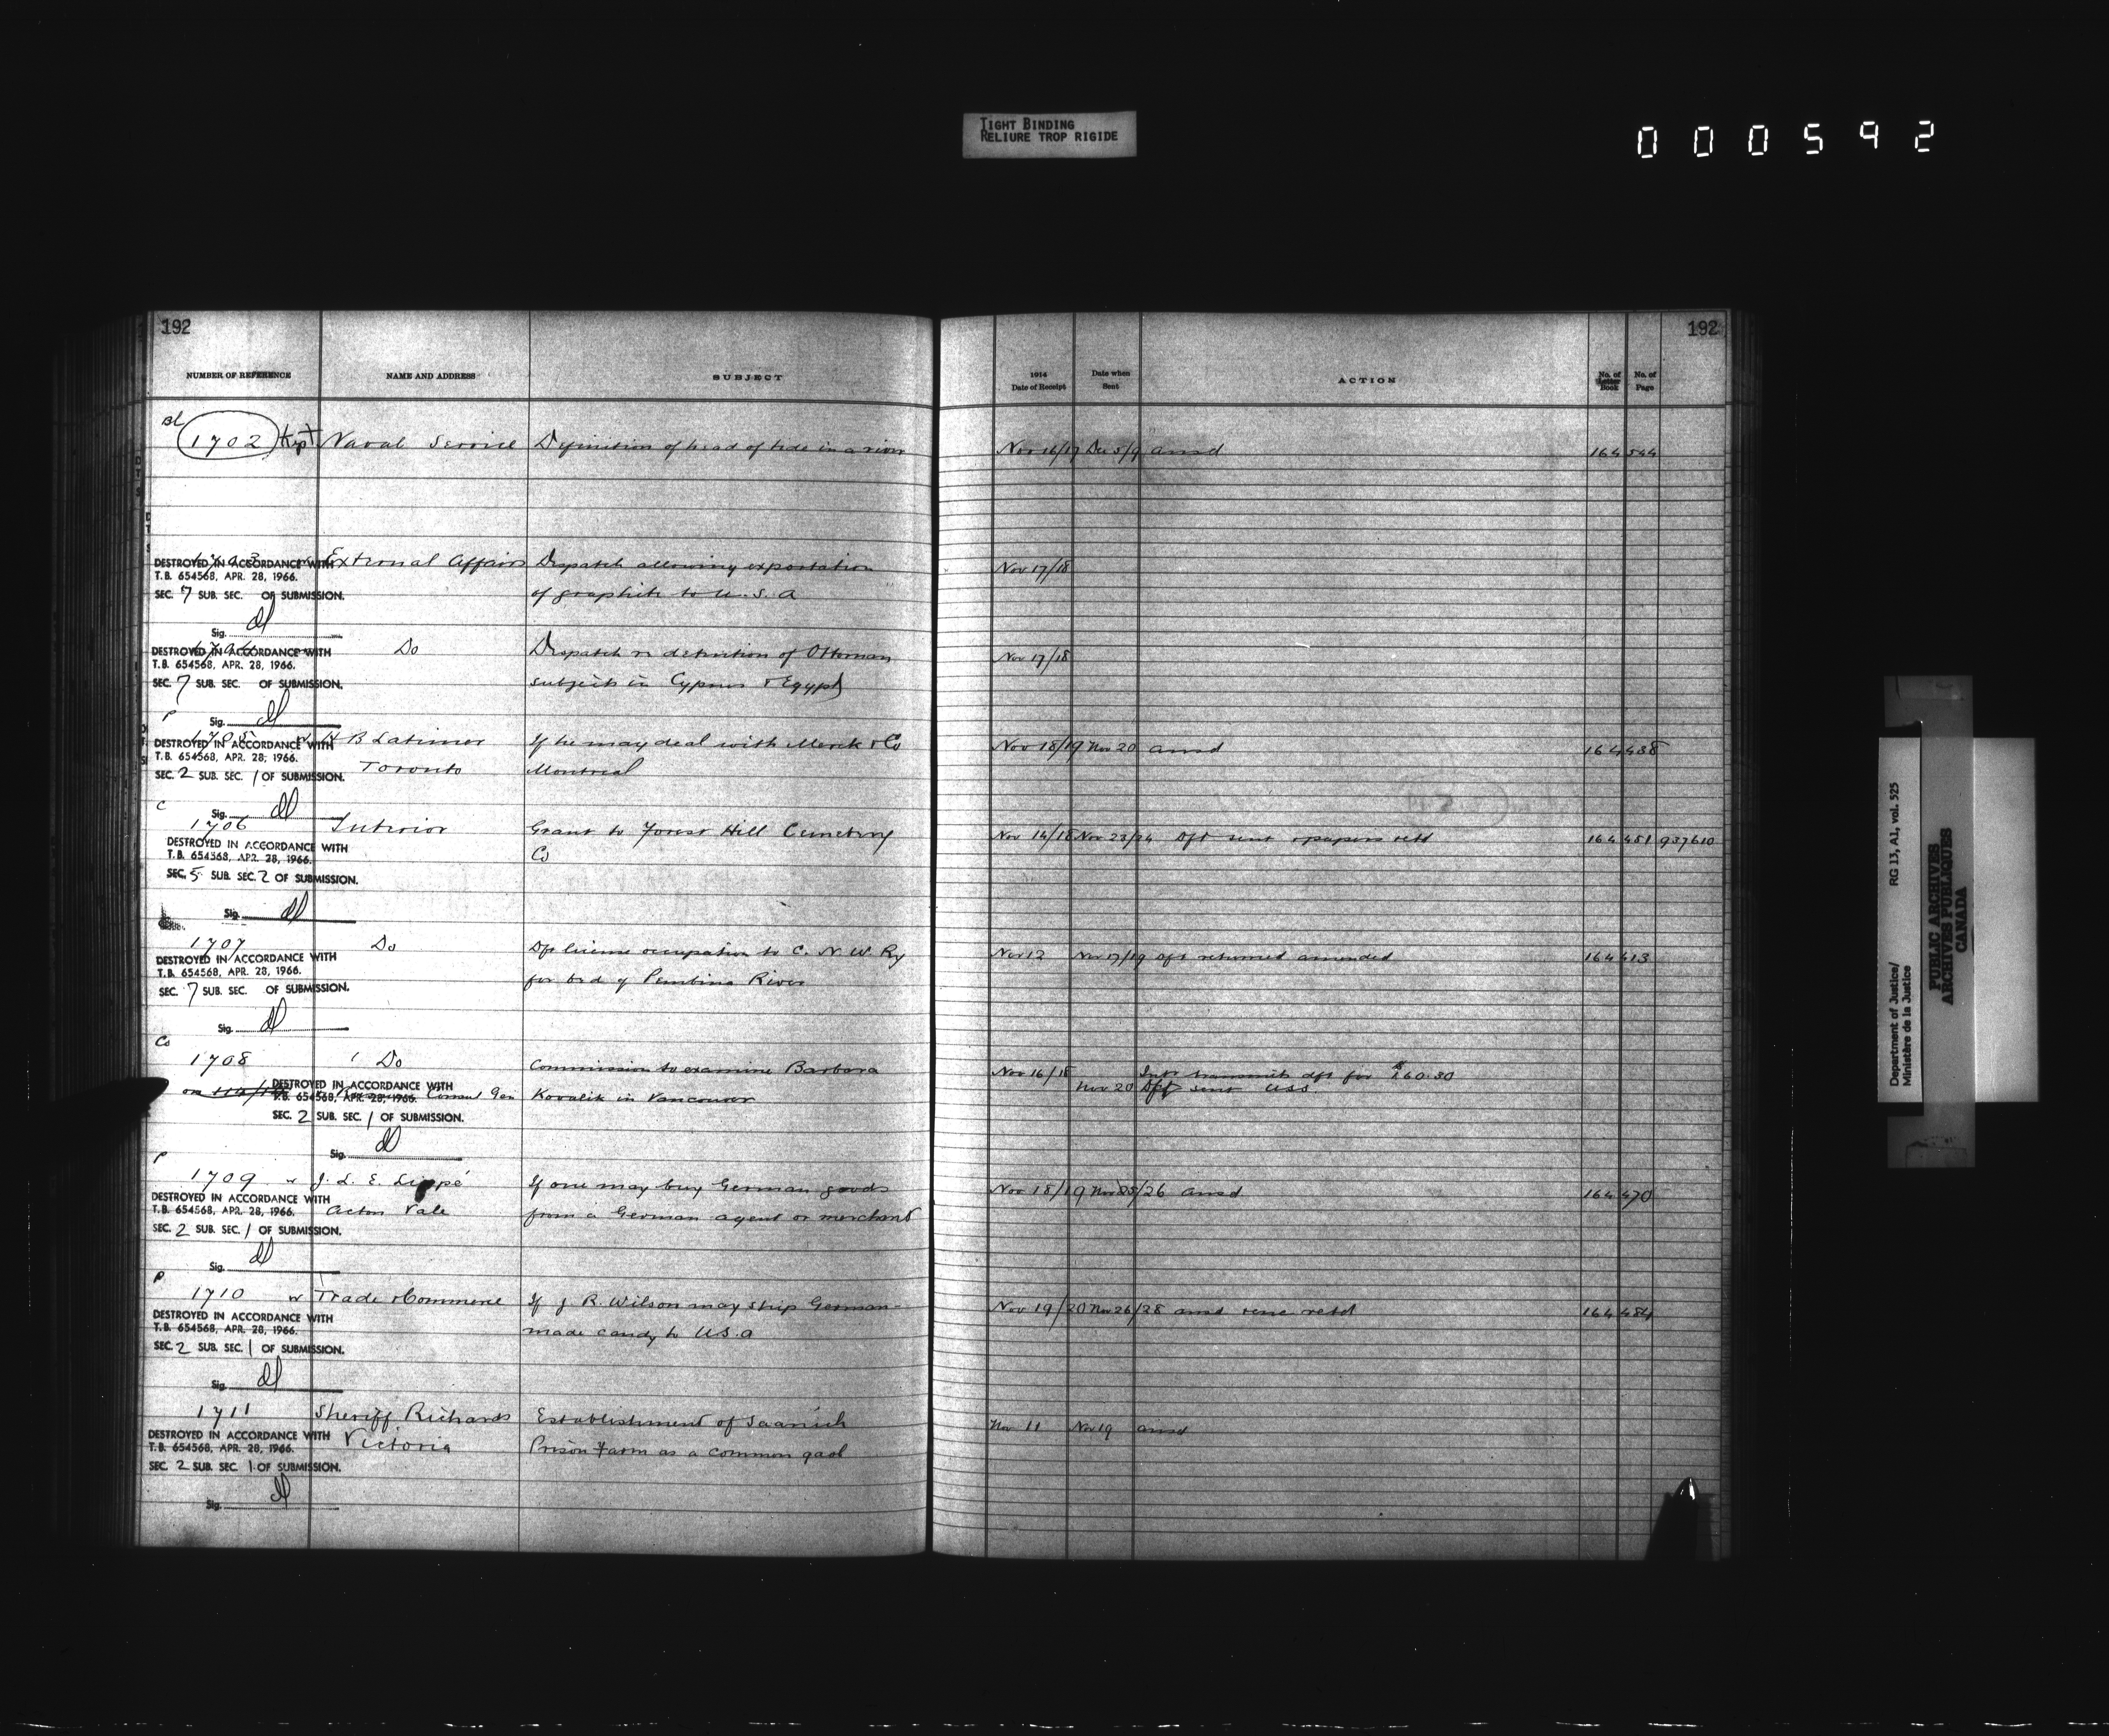 TIGHT BINDING
RELIURE TROP RIGIDE
000592
192
NUMBER OF REFERENCE NAME AND ADDRESS SUBJECT
Bl
1702 Kept Naval Service Definition of head of tide in a river
1703 External Affairs Dispatch allowing exportation
DESTROYED IN ACCORDANCE WITH
T.B. 654568, APR. 28, 1966.
SEC. 7 SUB. SEC. OF SUBMISSION. of graphite to U.S.A
Sig.
Do Dispatch re definition of Ottoman
DESTROYED IN ACCORDANCE WITH
T.B. 654568, APR. 28, 1966.
SEC. 7 SUB. SEC. OF SUBMISSION. subjects in Cyprus & Egypt
Sig.
P
1705 H B Latimer If he may deal with Merck & Co
DESTROYED IN ACCORDANCE WITH
T.B. 654568, APR. 28, 1966.
Toronto Montreal
SEC. 2 SUB. SEC. 1 OF SUBMISSION.
Sig.
C
1706 Interior Grant to Forest Hill Cemetery
DESTROYED IN ACCORDANCE WITH
Co
T.B. 654568, APR. 28, 1966.
SEC. 5 SUB. SEC. 2 OF SUBMISSION.
Sig.
1707 Do Dft license occupation to C. N. W. Ry
DESTROYED IN ACCORDANCE WITH
T.B. 654568, APR. 28, 1966.
for bed of Pembina River
SEC. 7 SUB. SEC. OF SUBMISSION.
Sig.
Co
1708 Do Commission to examine Barbara
DESTROYED IN ACCORDANCE WITH
T.B. 654568, APR. 28, 1966.
Consul Gen Kovalik in Vancouver
SEC. 2 SUB. SEC. 1 OF SUBMISSION.
Sig.
P
1709 J. L. E. Lippé If one may buy German goods
DESTROYED IN ACCORDANCE WITH
T.B. 654568, APR. 28, 1966.
Acton Vale from a German agent or merchant
SEC. 2 SUB. SEC. 1 OF SUBMISSION.
Sig.
P
1710 Trade & Commerce If J R. Wilson may ship German
DESTROYED IN ACCORDANCE WITH
T.B. 654568, APR. 28, 1966.
made candy to U.S.A
SEC. 2 SUB. SEC. 1 OF SUBMISSION.
Sig.
1711 Sheriff Richards Establishment of Saanich
DESTROYED IN ACCORDANCE WITH
T.B. 654568, APR. 28, 1966.
Victoria Prison Farm as a common gaol
SEC. 2 SUB. SEC. 1 OF SUBMISSION.
Sig.
192
1914 Date of Receipt Date when Sent ACTION No. of Letter Book No. of Page
Nov 16/17 Dec 5/9 ansd 164 544
Nov 17/18
Nov 17/18
Nov 18/19 Nov 20 ansd 164 438
Nov 14/18 Nov 23/24 Dft sent & papers retd 164 451 937610
Nov 12 Nov 17/19 Dft returned amended 164 413
Nov 16/18 transmits dft for $160.30
Nov 20 Dft sent USS
Nov 18/19 Nov 25/26 ansd 164 470
Nov 19/20 Nov 26/28 ansd retd 164 484
Nov 11 Nov 19 ansd
Department of Justice/ RG 13, A1, vol. 525
Ministère de la Justice
PUBLIC ARCHIVES
ARCHIVES PUBLIQUES
CANADA